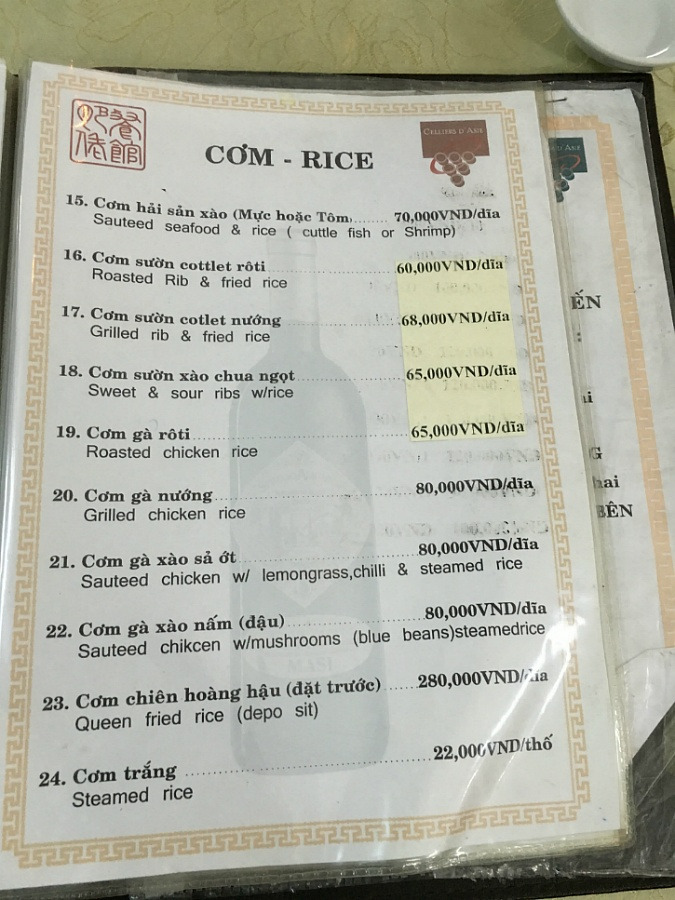 CƠM - RICE
CELLIERS D'ASIE
15. Cơm hải sản xào (Mực hoặc Tôm)........ 70,000VND/dĩa
Sauteed seafood & rice ( cuttle fish or Shrimp)
16. Cơm sườn cottlet rôti........60,000VND/dĩa
Roasted Rib & fried rice
17. Cơm sườn cotlet nướng........68,000VND/dĩa
Grilled rib & fried rice
18. Cơm sườn xào chua ngọt........65,000VND/dĩa
Sweet & sour ribs w/rice
19. Cơm gà rôti........65,000VND/dĩa
Roasted chicken rice
20. Cơm gà nướng........80,000VND/dĩa
Grilled chicken rice
21. Cơm gà xào sả ớt........80,000VND/dĩa
Sauteed chicken w/ lemongrass,chilli & steamed rice
22. Cơm gà xào nấm (đậu)........80,000VND/dĩa
Sauteed chikcen w/mushrooms (blue beans)steamedrice
23. Cơm chiên hoàng hậu (đặt trước)......280,000VND/dĩa
Queen fried rice (depo sit)
24. Cơm trắng........22,000VND/thố
Steamed rice
MASI
ẾN
G
hai
BÊN